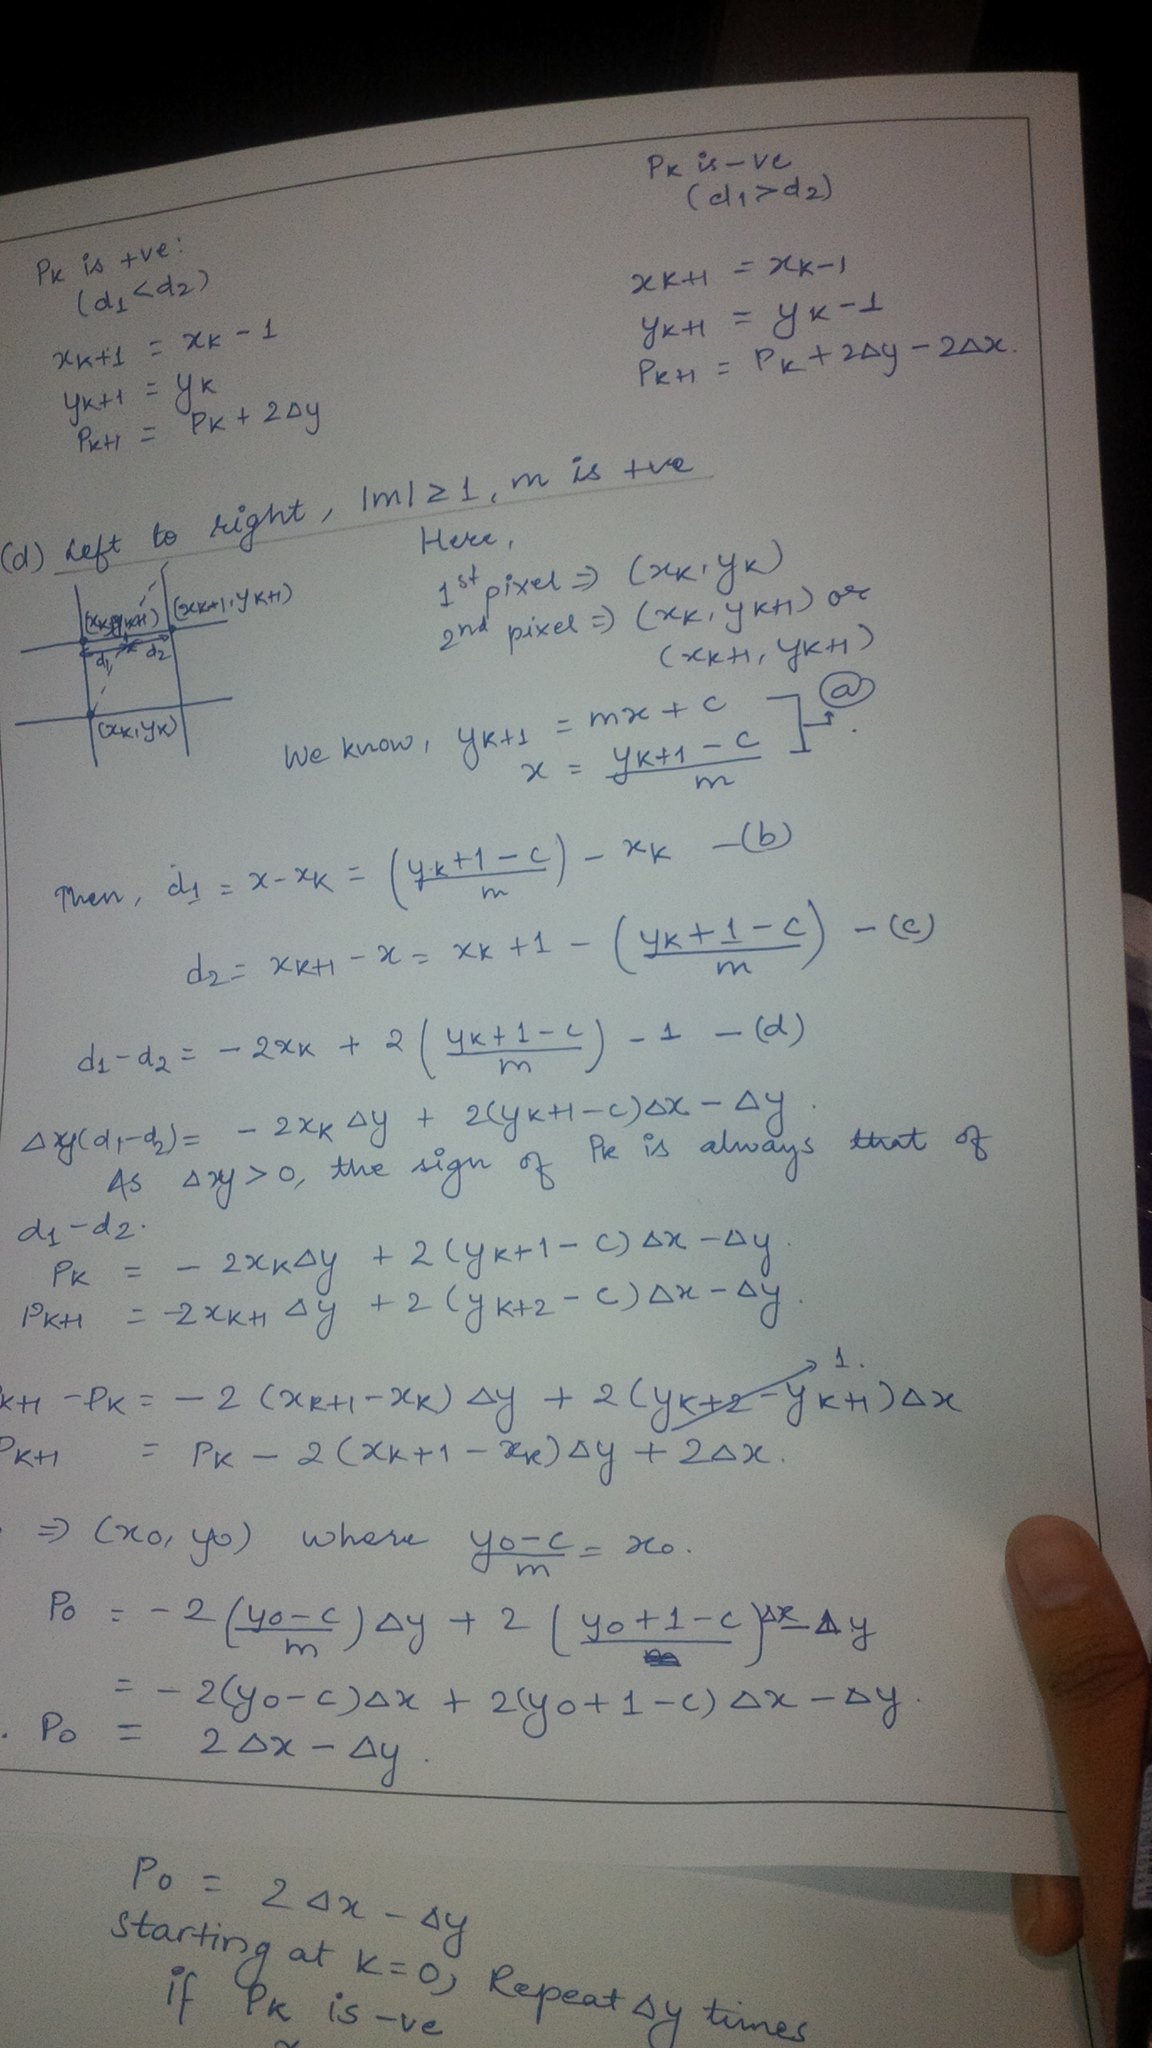 Pk is +ve:
(d1 < d2)
xk+1 = xk - 1
yk+1 = yk
Pk+1 = Pk + 2Δy
Pk is -ve
(d1 > d2)
xk+1 = xk-1
yk+1 = yk-1
Pk+1 = Pk + 2Δy - 2Δx.
(d) Left to right, |m| ≥ 1, m is +ve
Here,
1st pixel ⇒ (xk, yk)
2nd pixel ⇒ (xk, yk+1) or
(xk+1, yk+1)
(xk, yk+1) (xk+1, yk+1)
d1 d2
(xk, yk)
We know, yk+1 = mx + c
x = (yk+1 - c)/m
(a)
Then, d1 = x - xk = ((yk+1-c)/m) - xk - (b)
d2 = xk+1 - x = xk + 1 - ((yk+1-c)/m) - (c)
d1 - d2 = - 2xk + 2((yk+1-c)/m) - 1 - (d)
Δy(d1-d2) = - 2xk Δy + 2(yk+1-c)Δx - Δy.
As Δy > 0, the sign of Pk is always that of
d1 - d2.
Pk = - 2xkΔy + 2(yk+1-c)Δx - Δy.
Pk+1 = -2xk+1 Δy + 2(yk+2-c)Δx - Δy.
k+1 - Pk = - 2(xk+1-xk)Δy + 2(yk+2-yk+1)Δx
1.
Pk+1 = Pk - 2(xk+1-xk)Δy + 2Δx.
⇒ (x0, y0) where (y0-c)/m = x0.
P0 = - 2((y0-c)/m)Δy + 2(y0+1-c)Δx - Δy
= - 2(y0-c)Δx + 2(y0+1-c)Δx - Δy.
. P0 = 2Δx - Δy.
P0 = 2Δx - Δy
starting at k=0, Repeat Δy times
if Pk is -ve